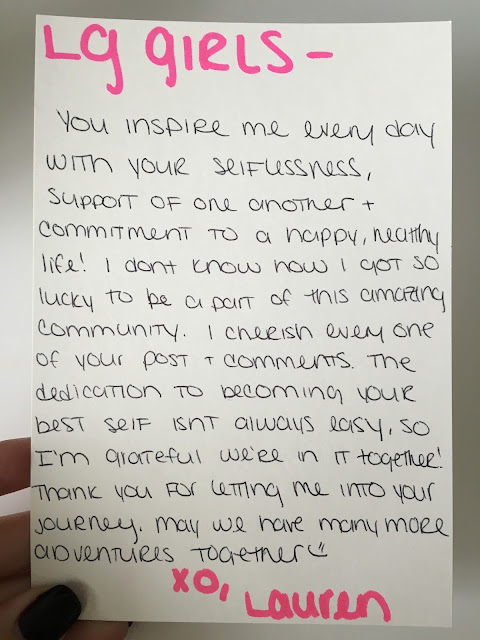 LG GIRLS -
You inspire me every day
with your selflessness,
support of one another +
commitment to a happy, healthy
life! I dont know how I got so
lucky to be a part of this amazing
community. I cherish every one
of your post + comments. The
dedication to becoming your
best self isnt always easy, so
I'm grateful we're in it together!
Thank you for letting me into your
journey. may we have many more
adventures together
xo, Lauren